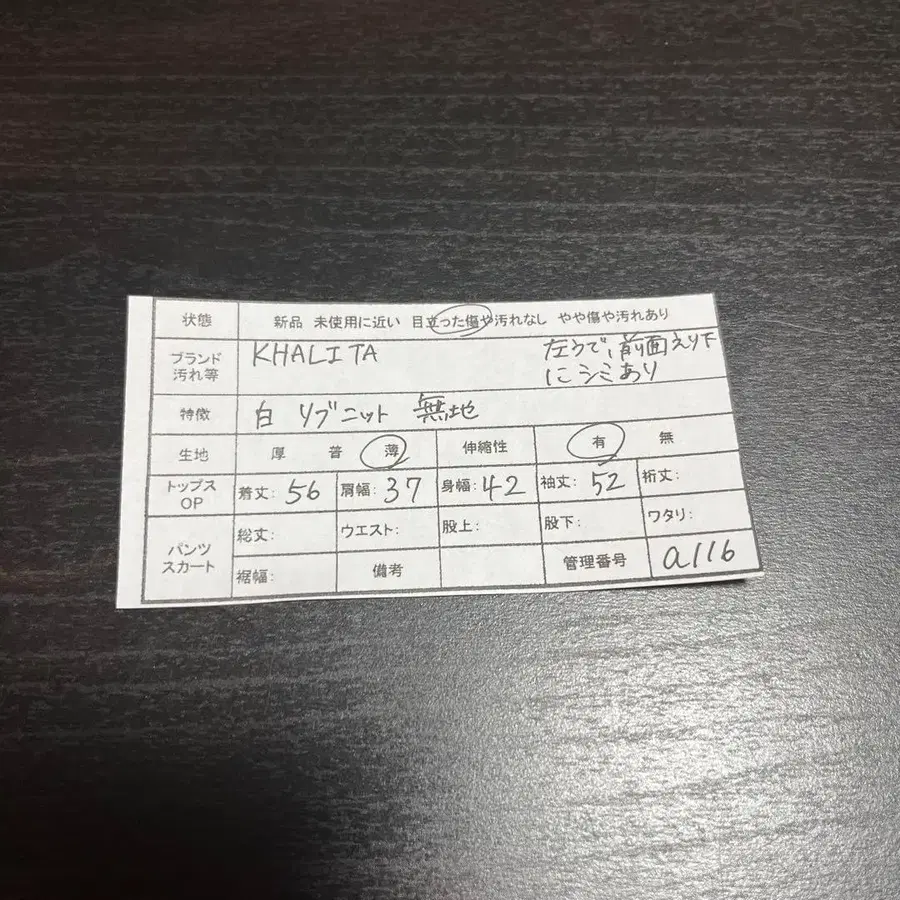 状態 新品 未使用に近い 目立った傷や汚れなし やや傷や汚れあり
ブランド
汚れ等
KHALITA
左うで、前面えり下
にシミあり
特徴 白 リブニット 無地
生地 厚 普 薄 伸縮性 有 無
トップス
OP
着丈: 56 肩幅: 37 身幅: 42 袖丈: 52 裄丈:
パンツ
スカート
総丈: ウエスト: 股上: 股下: ワタリ:
裾幅: 備考 管理番号 a116